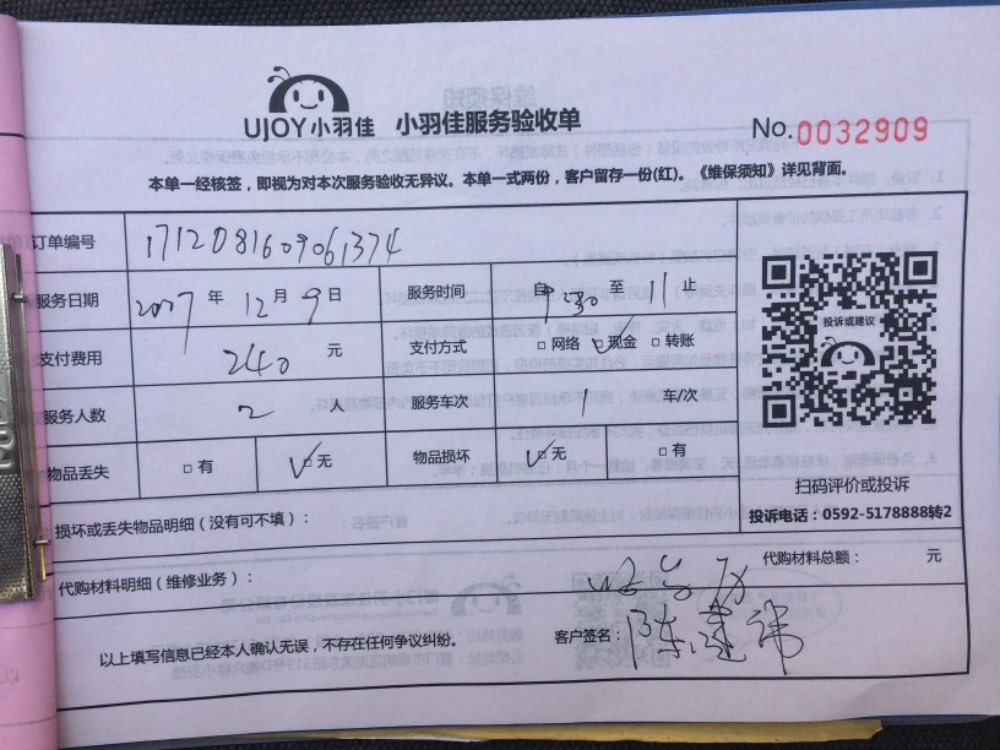 UJOY小羽佳 小羽佳服务验收单
No.0032909
本单一经核签，即视为对本次服务验收无异议。本单一式两份，客户留存一份(红)。《维保须知》详见背面。
订单编号 1712081609061374
服务日期 2017 年 12 月 9 日 服务时间 自 730 至 11 止
支付费用 240 元 支付方式 □网络 □现金 □转账
服务人数 2 人 服务车次 1 车/次
物品丢失 □有 □无 物品损坏 □无 □有
投诉或建议
扫码评价或投诉
投诉电话：0592-5178888转2
损坏或丢失物品明细（没有可不填）：
代购材料明细（维修业务）： 代购材料总额： 元
以上填写信息已经本人确认无误，不存在任何争议纠纷。 客户签名： 陈建伟